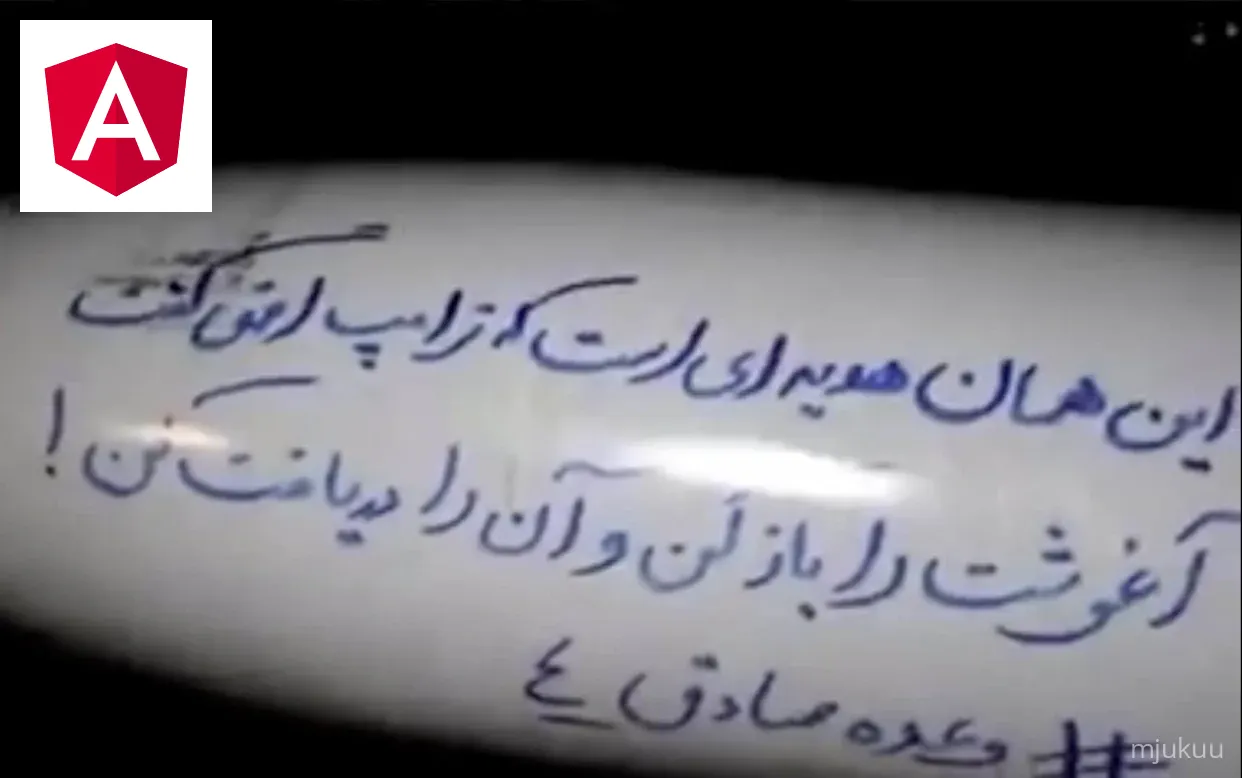 این همان هدیه ای است که ترامپ احمق گفت
آغوشت را باز کن و آن را دریافت کن !
# وعده صادق ٤
mjukuu